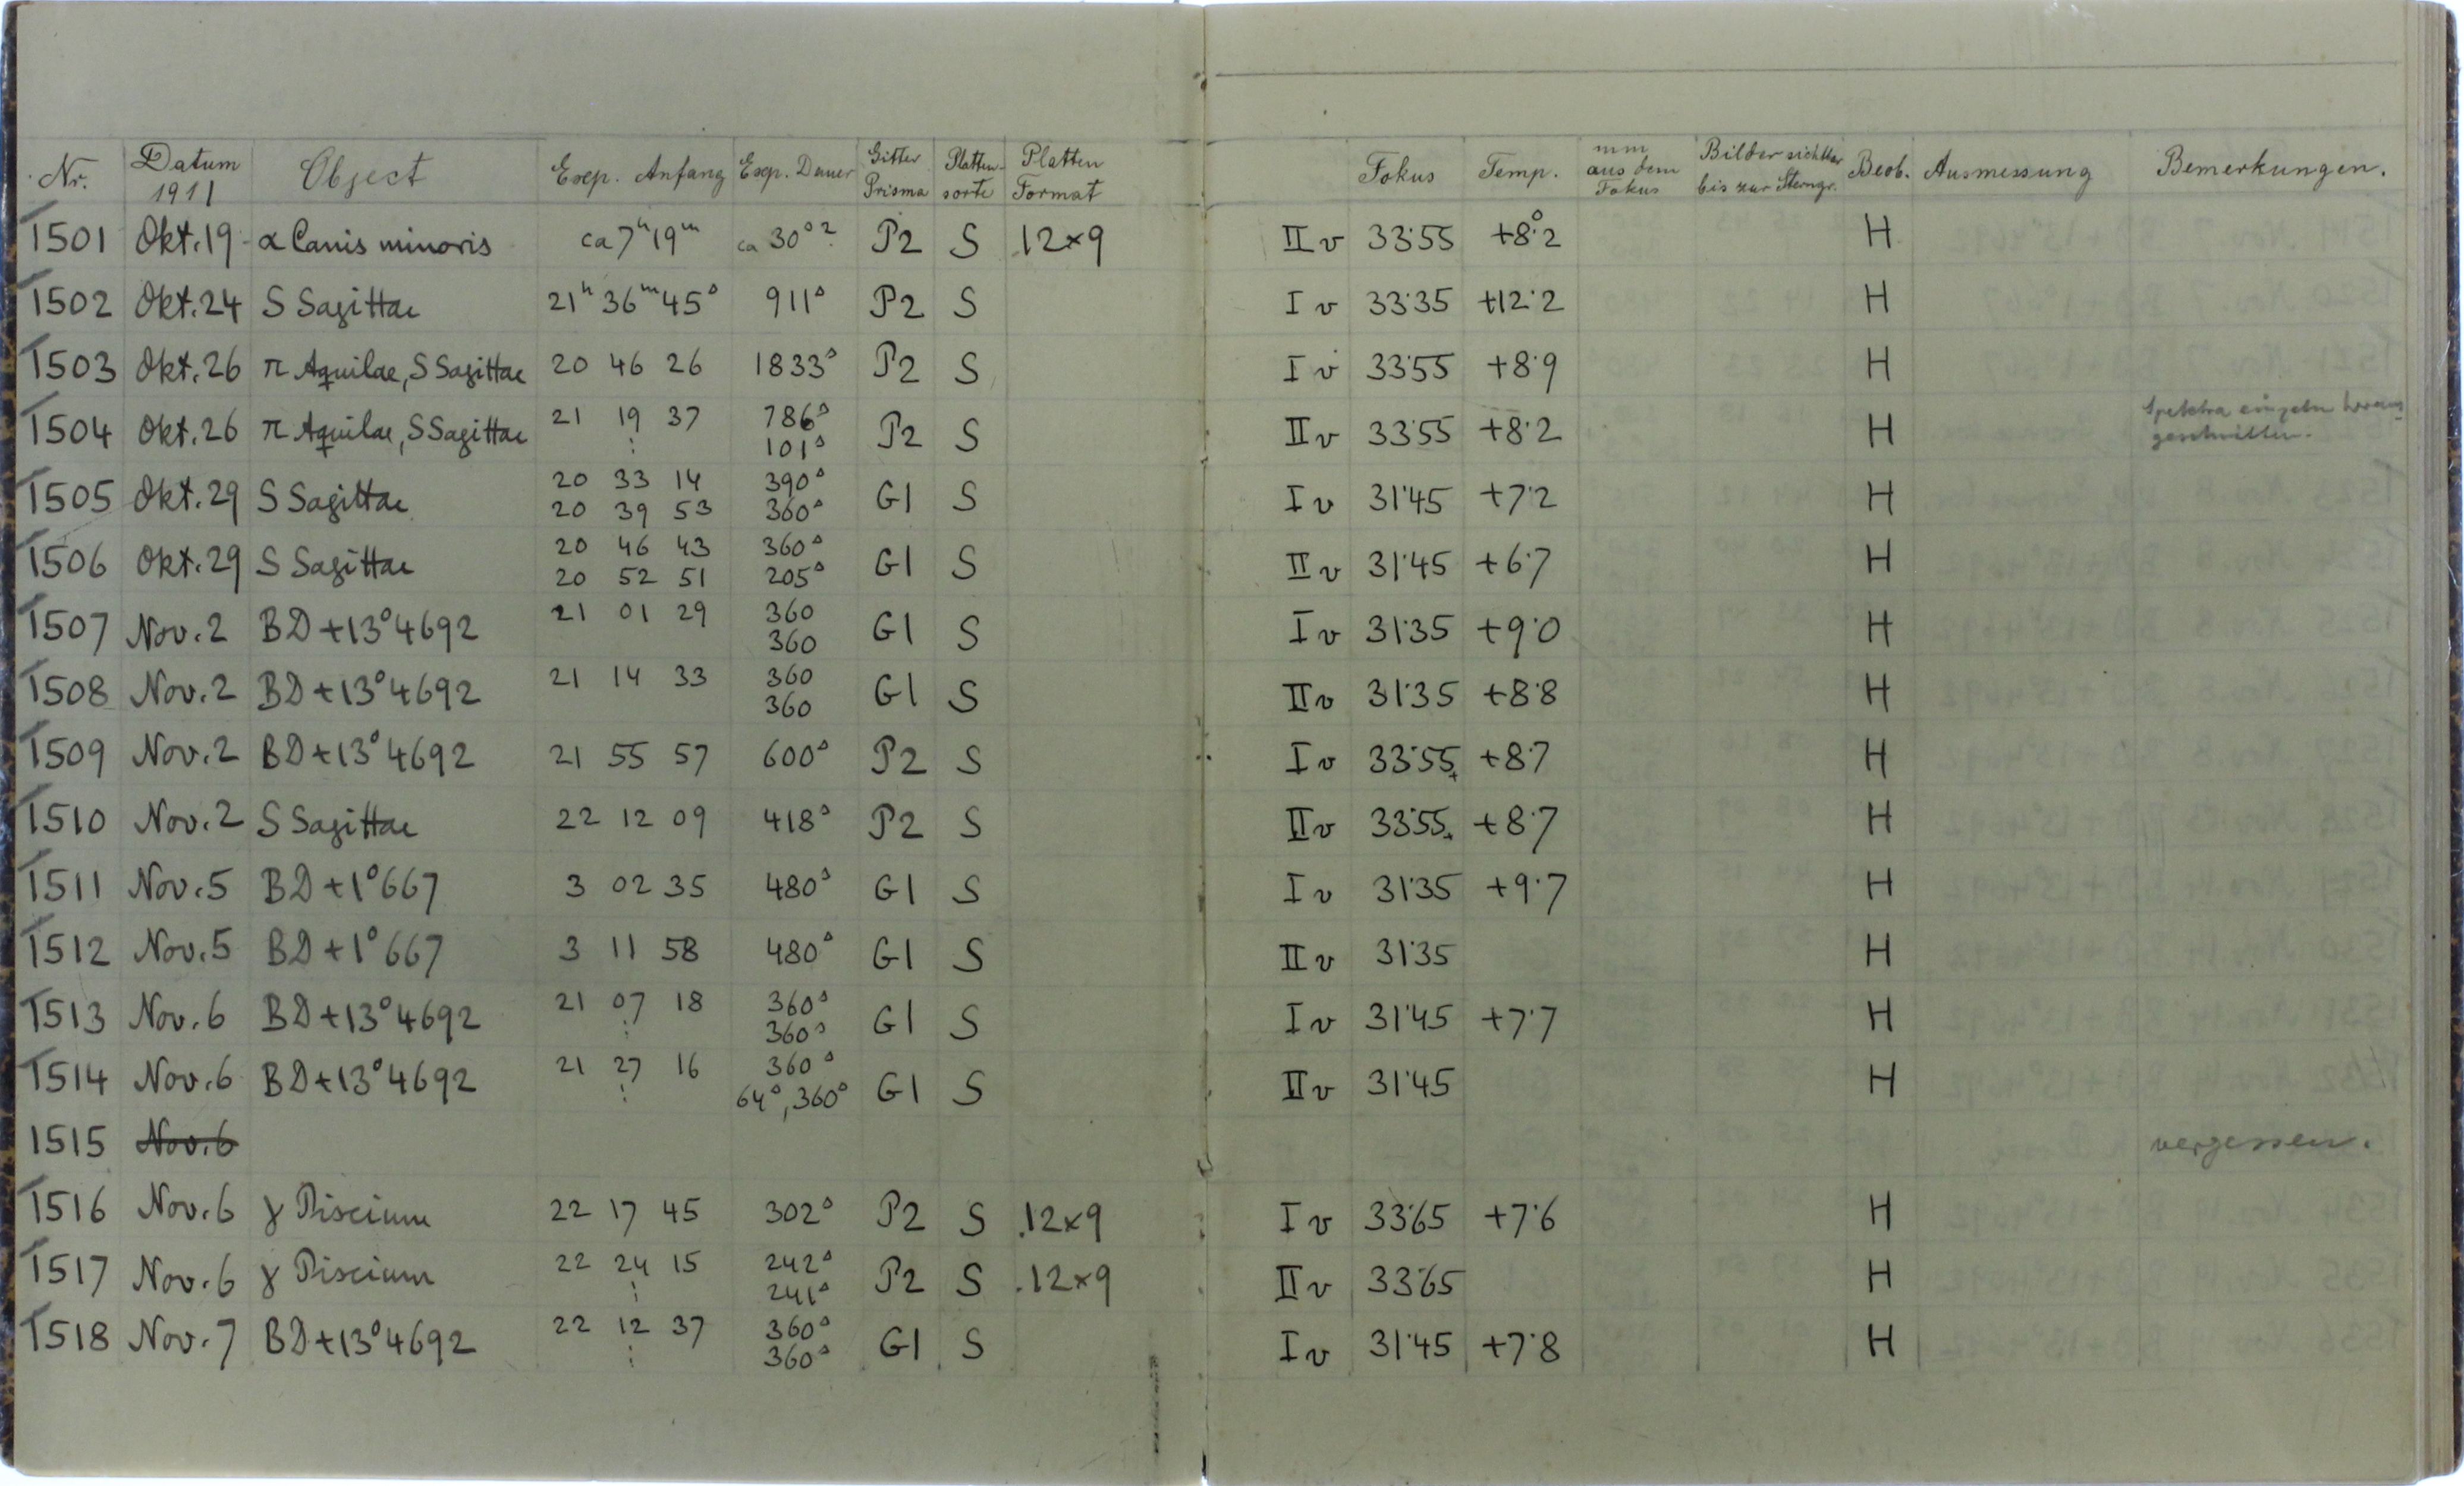 Nr. Datum 1911 Object Exp. Anfang Exp. Dauer Gitter Prisma Platten-sorte Platten Format Fokus Temp. mm aus dem Fokus Bilder sichtbar bis zur Sterngr. Beob. Ausmessung Bemerkungen.
1501 Okt. 19 α Canis minoris ca 7ʰ 19ᵐ ca 30ˢ? P2 S 12×9 II v 33·55 +8°·2 H
1502 Okt. 24 S Sagittae 21ʰ 36ᵐ 45ˢ 911ˢ P2 S I v 33·35 +12·2 H
1503 Okt. 26 π Aquilae, S Sagittae 20 46 26 1833ˢ P2 S I v 33·55 +8·9 H
1504 Okt. 26 π Aquilae, S Sagittae 21 19 37 786ˢ P2 S II v 33·55 +8·2 H Spektra einzeln heraus-
⋮ 101ˢ geschnitten.
1505 Okt. 29 S Sagittae 20 33 14 390ˢ G1 S I v 31·45 +7·2 H
20 39 53 360ˢ
1506 Okt. 29 S Sagittae 20 46 43 360ˢ G1 S II v 31·45 +6·7 H
20 52 51 205ˢ
1507 Nov. 2 BD +13°4692 21 01 29 360 G1 S I v 31·35 +9·0 H
360
1508 Nov. 2 BD +13°4692 21 14 33 360 G1 S II v 31·35 +8·8 H
360
1509 Nov. 2 BD +13°4692 21 55 57 600ˢ P2 S I v 33·55+ +8·7 H
1510 Nov. 2 S Sagittae 22 12 09 418ˢ P2 S II v 33·55+ +8·7 H
1511 Nov. 5 BD +1°667 3 02 35 480ˢ G1 S I v 31·35 +9·7 H
1512 Nov. 5 BD +1°667 3 11 58 480ˢ G1 S II v 31·35 H
1513 Nov. 6 BD +13°4692 21 07 18 360ˢ G1 S I v 31·45 +7·7 H
⋮ 360ˢ
1514 Nov. 6 BD +13°4692 21 27 16 360ˢ G1 S II v 31·45 H
⋮ 64ˢ, 360ˢ
1515 Nov. 6 vergessen.
1516 Nov. 6 γ Piscium 22 17 45 302ˢ P2 S 12×9 I v 33·65 +7·6 H
1517 Nov. 6 γ Piscium 22 24 15 242ˢ P2 S 12×9 II v 33·65 H
⋮ 241ˢ
1518 Nov. 7 BD +13°4692 22 12 37 360ˢ G1 S I v 31·45 +7·8 H
⋮ 360ˢ